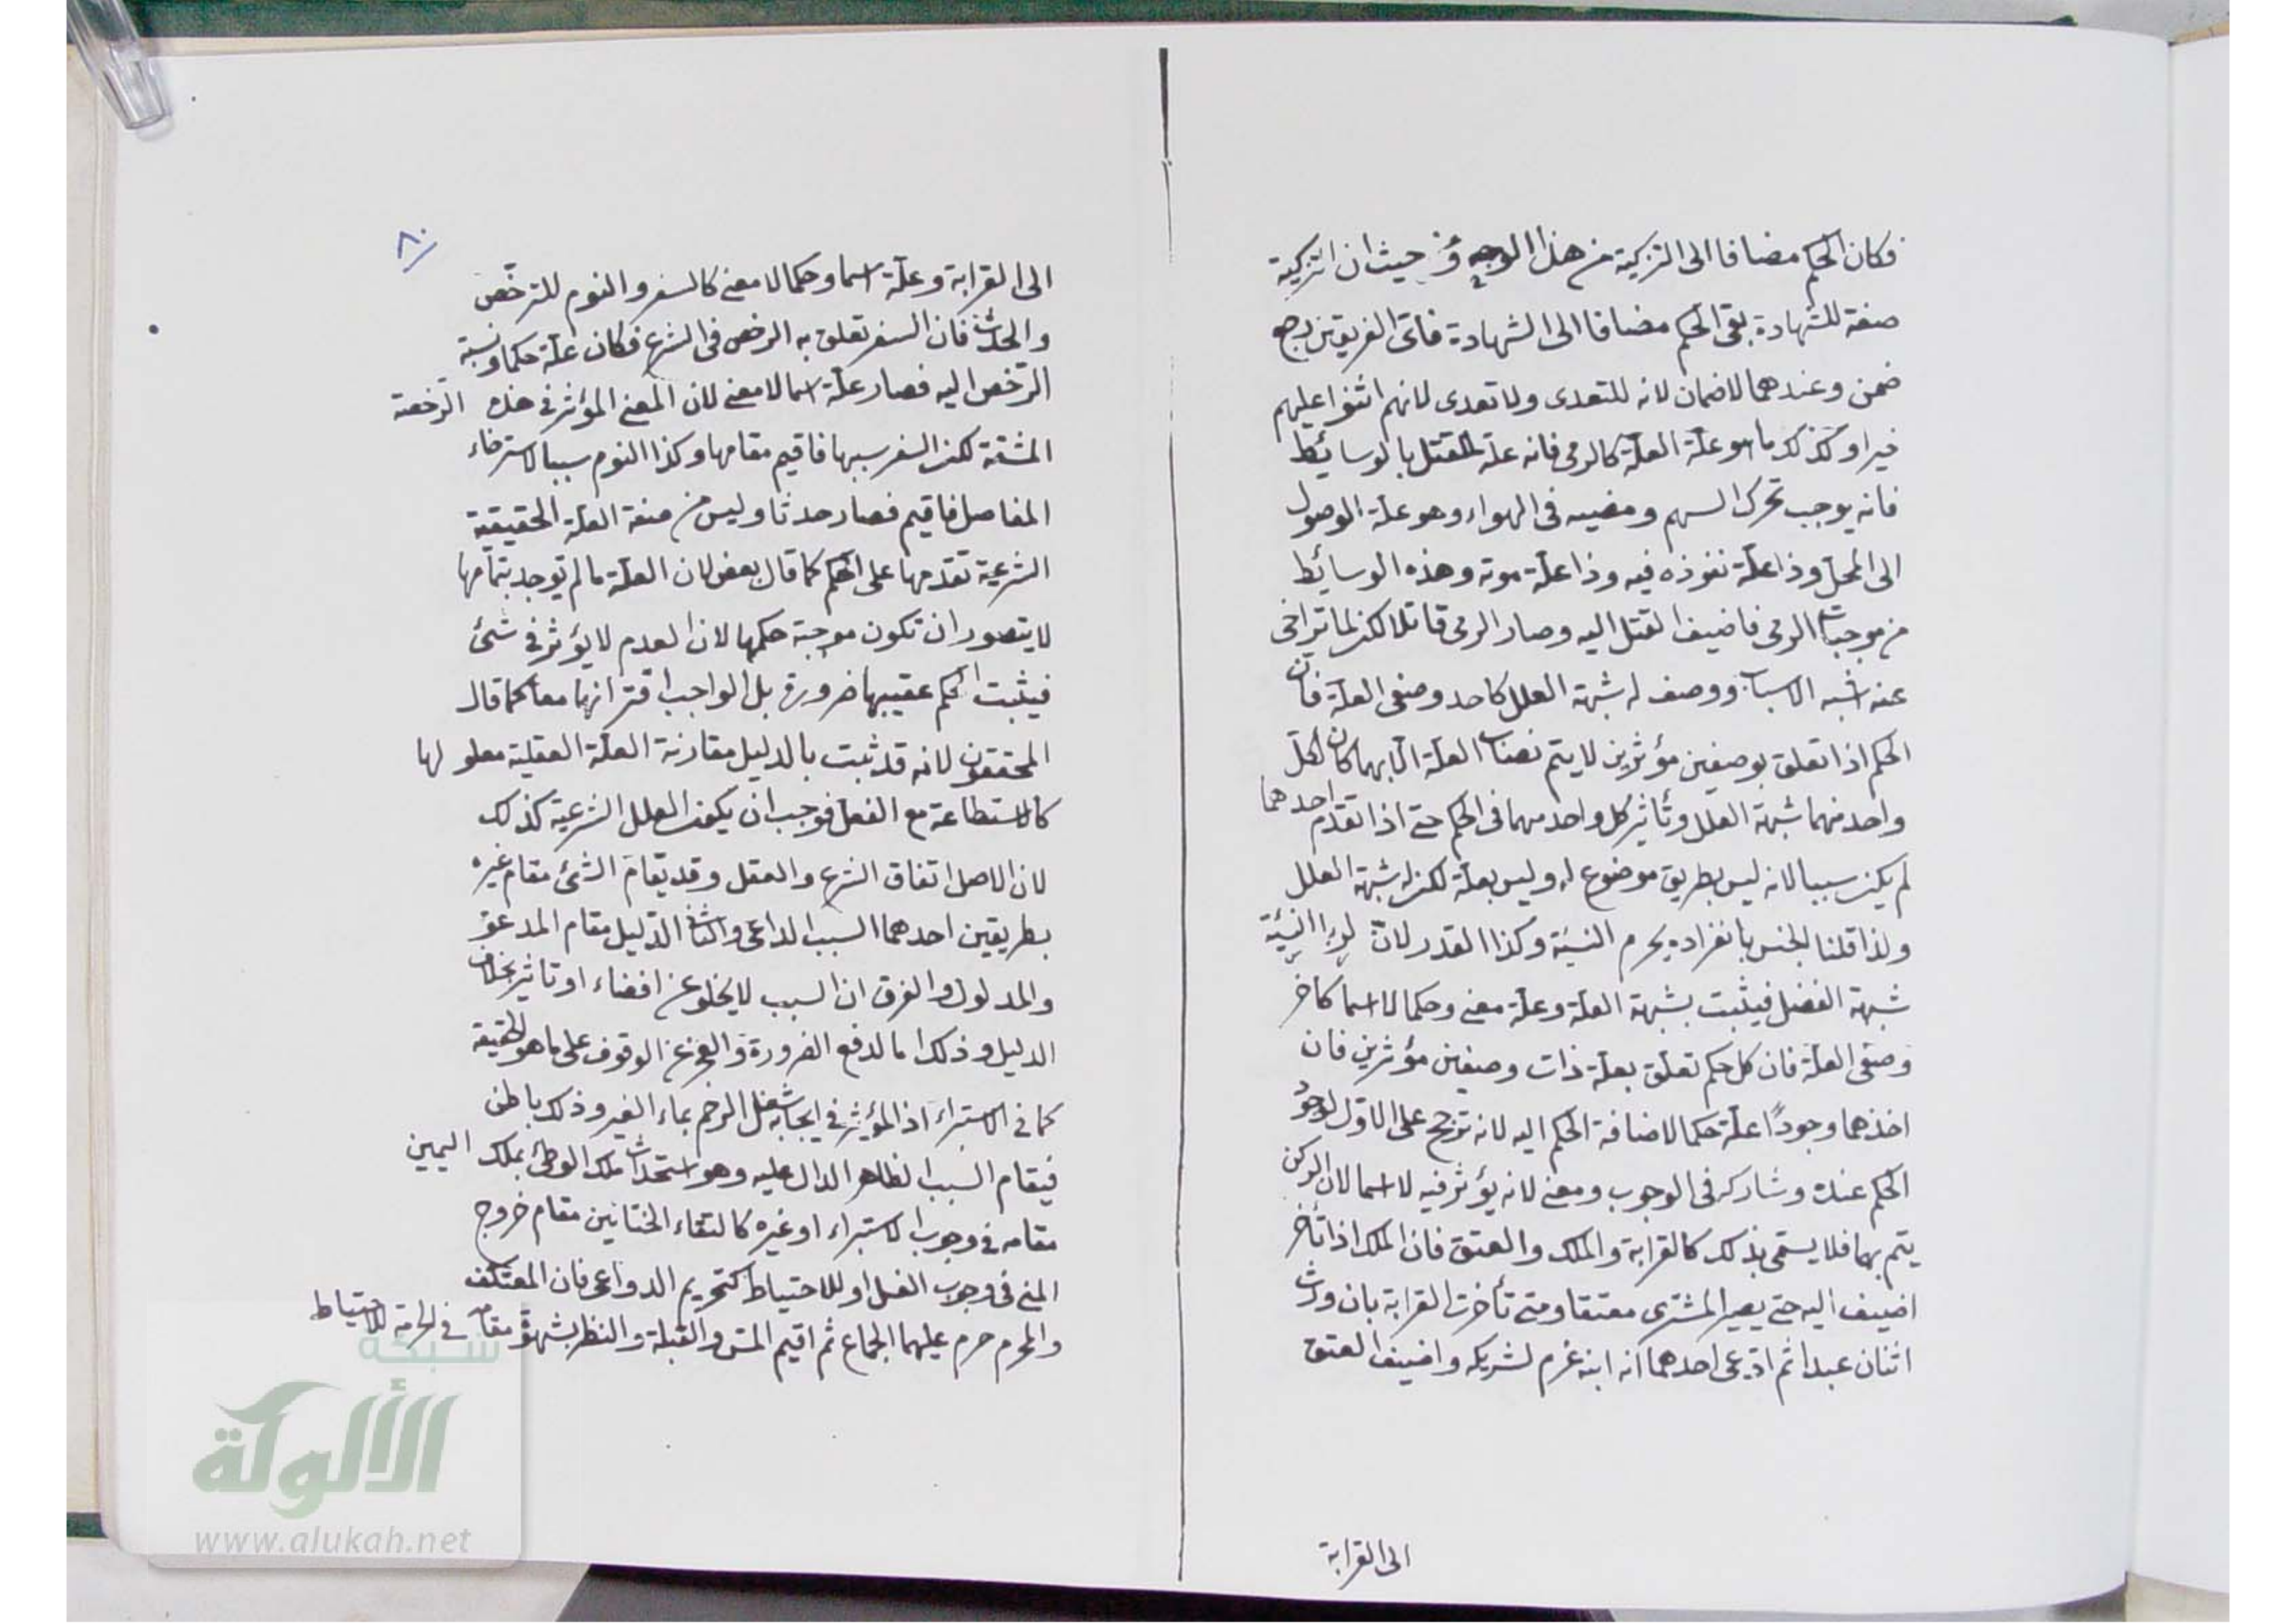 فكان الحكم مضافا الى التزكية من هذا الوجه ومن حيث ان التزكية
صفة للشهادة بقى الحكم مضافا الى الشهادة فاى الفريقين رجع
ضمن وعندهما لا ضمان لانه للتعدى ولا تعدى لانهم اثنوا عليهم
خيرا وكذلك ما هو علة العلة كالرمى فانه علة للقتل بالوسائط
فانه يوجب تحرك السهم ومضيه فى الهواء وهو علة الوصول
الى المحل وذا علة نفوذه فيه وذا علة موته وهذه الوسائط
من موجبات الرمى فاضيف القتل اليه وصار الرمى قاتلا لكن لما تراخى
عنه اشبه الاسباب ووصف له شبهة العلل كاحد وصفى العلة فان
الحكم اذا تعلق بوصفين مؤثرين لا يتم نصاب العلة الا بهما كان لكل
واحد منهما شبهة العلل وتأثير كل واحد منهما فى الحكم حتى اذا تقدم احدهما
لم يكن سببا لانه ليس بطريق موضوع له وليس بعلة لكن له شبهة العلل
ولذا قلنا الجنس بانفراده يحرم النسيئة وكذا القدر لان لربا النسيئة
شبهة الفضل فيثبت بشبهة العلة وعلة معنى وحكما لا اسما كاخر
وصفى العلة فان كل حكم تعلق بعلة ذات وصفين مؤثرين فان
اخرهما وجودًا علة حكما لاضافة الحكم اليه لانه ترجح على الاول لوجود
الحكم عنده وشاركه فى الوجوب ومعنى لانه يؤثر فيه لا اسما لان الركن
يتم بهما فلا يسمى بذلك كالقرابة والملك والعتق فان الملك اذا تأخر
اضيف اليه حتى يصير المشترى معتقا ومتى تأخرت القرابة بان ورث
اثنان عبدا ثم ادعى احدهما انه ابنه غرم لشريكه واضيف العتق
الى القرابة
٨٠
الى القرابة وعلة اسما وحكما لا معنى كالسفر والنوم للترخّص
والحدث فان السفر تعلق به الرخص فى الشرع فكان علة حكما ونسبة
الرّخص اليه فصار علة اسما لا معنى لان المعنى المؤثر فى هذه الرّخصة
المشقة لكن السفر سببها فاقيم مقامها وكذا النوم سببا لاسترخاء
المفاصل فاقيم فصار حدثا وليس من صفة العلة الحقيقية
الشرعية تقدمها على الحكم كما قال بعض لان العلة ما لم توجد بتمامها
لا يتصور ان تكون موجبة حكمها لان العدم لا يؤثر فى شئ
فيثبت الحكم عقيبها ضرورة بل الواجب اقترانهما معا كما قال
المحققون لانه قد ثبت بالدليل مقارنة العلة العقلية معلولها
كالاستطاعة مع الفعل فوجب ان يكون العلل الشرعية كذلك
لان الاصل اتفاق الشرع والعقل وقد يقام الشئ مقام غيره
بطريقين احدهما السبب الداعى والثانى الدليل مقام المدعو
والمدلول والفرق ان السبب لا يخلو عن افضاء او تأثير بخلاف
الدليل وذلك اما لدفع الضرورة والعجز عن الوقوف على ما هو الحقيقة
كما فى الاستبراء اذ المؤثر فى ايجابه شغل الرحم بماء الغير وذلك باطن
فيقام السبب الظاهر الدال عليه وهو استحداث ملك الوطئ بملك اليمين
مقامه فى وجوب الاستبراء او غيره كالتقاء الختانين مقام خروج
المنى فى وجوب الغسل او للاحتياط كتحريم الدواعى فان المعتكف
والمحرم حرم عليهما الجماع ثم اقيم المس والقبلة والنظر بشهوة مقامه فى الحرمة للاحتياط
شبكة
الألوكة
www.alukah.net